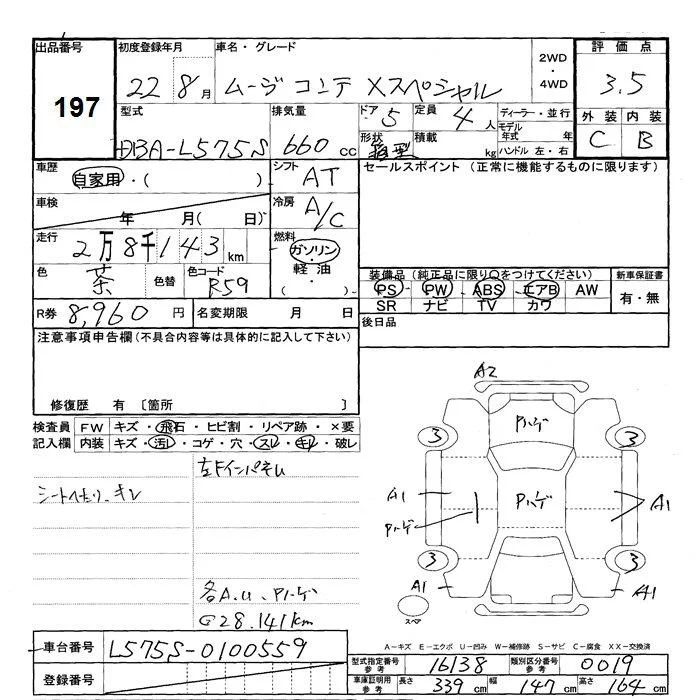 出品番号 初度登録年月 車名・グレード 2WD・4WD 評価点
197 22 8月 ムーヴ コンテ Xスペシャル 3.5
型式 排気量 ドア 5 定員 4人 ディーラー・並行 外装 内装
DBA-L575S 660cc 形状 箱型 積載 kg モデル年式 年 ハンドル 左・右 C B
車歴 自家用・( ) シフト AT セールスポイント (正常に機能するものに限ります)
車検 年 月(日) 冷房 A/C
走行 2万8千143km 燃料 ガソリン・軽油・( )
色 茶 色替 色コード R59 装備品(純正品に限り○をつけてください) 新車保証書
PS PW ABS エアB AW 有・無
SR ナビ TV カワ
R券 8,960円 名変期限 月 日 後日品
注意事項申告欄(不具合内容等は具体的に記入して下さい)
修復歴 有 〔箇所 〕
検査員 FW キズ・飛石・ヒビ割・リペア跡・×要
記入欄 内装 キズ・汚レ・コゲ・穴・スレ・キレ・破レ
左Fインパキム
シートヘタリ、キレ
各A.U、Pハゲ
G28.141km
A2
Pハゲ
3 3
A1 Pハゲ A1
Pハゲ
3 3
A1 A1
スペア
A-キズ E-エクボ U-凹み W-補修跡 S-サビ C-腐食 XX-交換済
車台番号 L575S-0100559 型式指定番号 参考 16138 類別区分番号 参考 0019
登録番号 車庫証明用 参考 長さ 339cm 幅 147cm 高さ 164cm